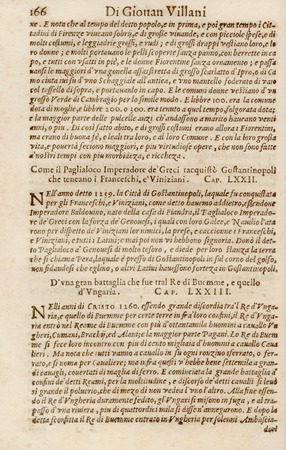 166 Di Giouan Villani
ne. E nota che al tempo del detto popolo, e in prima, e poi gran tempo i Cit-
tadini di Firenze viueano sobrij, e di grosse viuande, e con picciole spese, e di
molti costumi, e leggiadrie grossi, e rudi; e di grossi drappi vestiano loro, e le
lor donne; e molti portauano le pelli scoperte sanza panno, con berrette in ca-
po, e tutti con vsatti in piè, e le donne Fiorentine sanza ornamenti; e passa-
uansi le maggiori d'vna gonella assai stretta di grosso scarlatto d'Ipro, ò di Ca
mo cinta iui sù d'vno scheggiale all'antica, e vno mantello foderato di vaio
col tassello di sopra, e portauanlo in capo. E le comuni donne vestiano d'vn
grosso Verde di Cambragio per lo simile modo. E libbre 100. era la comune
dota di moglie, e libbre 200. ò 300. era tenuto a quel tempo sfolgorata dota;
e la maggior parte delle pulcelle anzi ch'andassono a marito haueano venti
anni, o piu. Di cosi fatto abito, e di grossi costumi erano allora i Fiorentini,
ma erano di buona fè, e leali tra loro, e al loro Comune. E con la loro grossa
vita, e pouertà feciono maggiori, e piu virtudiose opere, che non sono fatte
a' nostri tempi con piu morbidezza, e ricchezza.
Come il Paglialoco Imperadore de' Greci racquistò Gostantinopoli
che teneano i Franceschi, e Viniziani. CAP. LXXII.
NEll'anno detto 1259. la Città di Gostantinopoli, laquale fu conquistata
per gli Franceschi, e Viniziani, come detto hauemo addietro, essendone
Imperadore Baldouino, nato della casa di Fiandra, il Paglialoco Imperado-
re de' Greci con la forza de' Genouesi, i quali con loro Galee, e Nauilio l'aita
rono per dispetto de' Viniziani lor nimici, la prese, e caccionne i Franceschi, e
Viniziani, e tutti i Latini; e mai poi non vi hebbono signoria. Donò il det-
to Paglialoco a' Genouesi di molto tesoro, e diede per loro stanza la terra
che si chiama Pera, laquale è presso di Gostantinopoli in sul corno del golfo,
non fidandosi che egliino, o altri Latini hauessono fortezza in Gostantinopoli.
D'vna gran battaglia che fue tral Re di Buemme, e quello
d'Vngaria. CAP. LXXIII.
NElli anni di CRISTO 1260. essendo grande discordia tra'l Re d'Vnga-
ria, e quello di Buemme per certe terre in fra' loro confini, il Re d'Vnga-
ria entrò nel Reame di Buemme con piu d'ottantamila huomini a cauallo Vn
gheri, Cumani, Brachij, ed Alani; e la maggior parte Pagani. Lo Re di Buem
me si fece loro incontro con piu di cento migliaia di huomini a cauallo. Caua
lieri. Ma nota che tutti vanno a cauallo in su ogni ronzino serrato, o fer-
rato, si nomano per Caualiere; ma in fra questi v'hebbe bene settemila gran-
di caualli, couertati di maglia di ferro. E cominciata la grande battaglia a'
confini de' detti Reami, per la moltitudine, e discorso de' detti caualli si leuò
si grande il poluerio, che di mezo di non vedea l'vno l'altro. Alla fine essen-
do il Re d'Vngheria duramente fedito, gl'Vngari si misono in fuga, e al trapas-
so d'vna riuiera, piu di quattordici mila si dissen'annegarono. E dopo la
detta sconfitta il Re di Buemme entrato in Vngheria per soluenni Ambascia-
dori